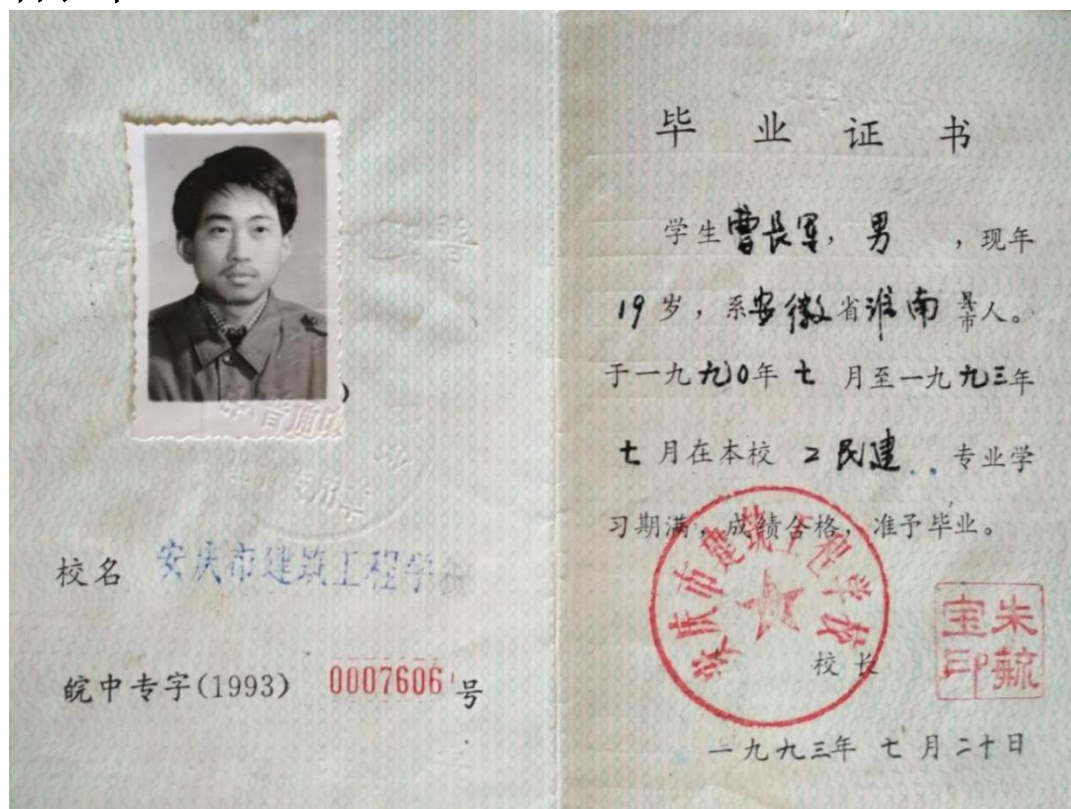 校名 安庆市建筑工程学校
皖中专字(1993) 0007606 号
毕业证书
学生曹长军，男，现年
19岁，系安徽省淮南县市人。
于一九九0年七月至一九九三年
七月在本校 工民建 专业学
习期满，成绩合格，准予毕业。
安庆市建筑工程学校
校长
朱毓宝印
一九九三年七月二十日